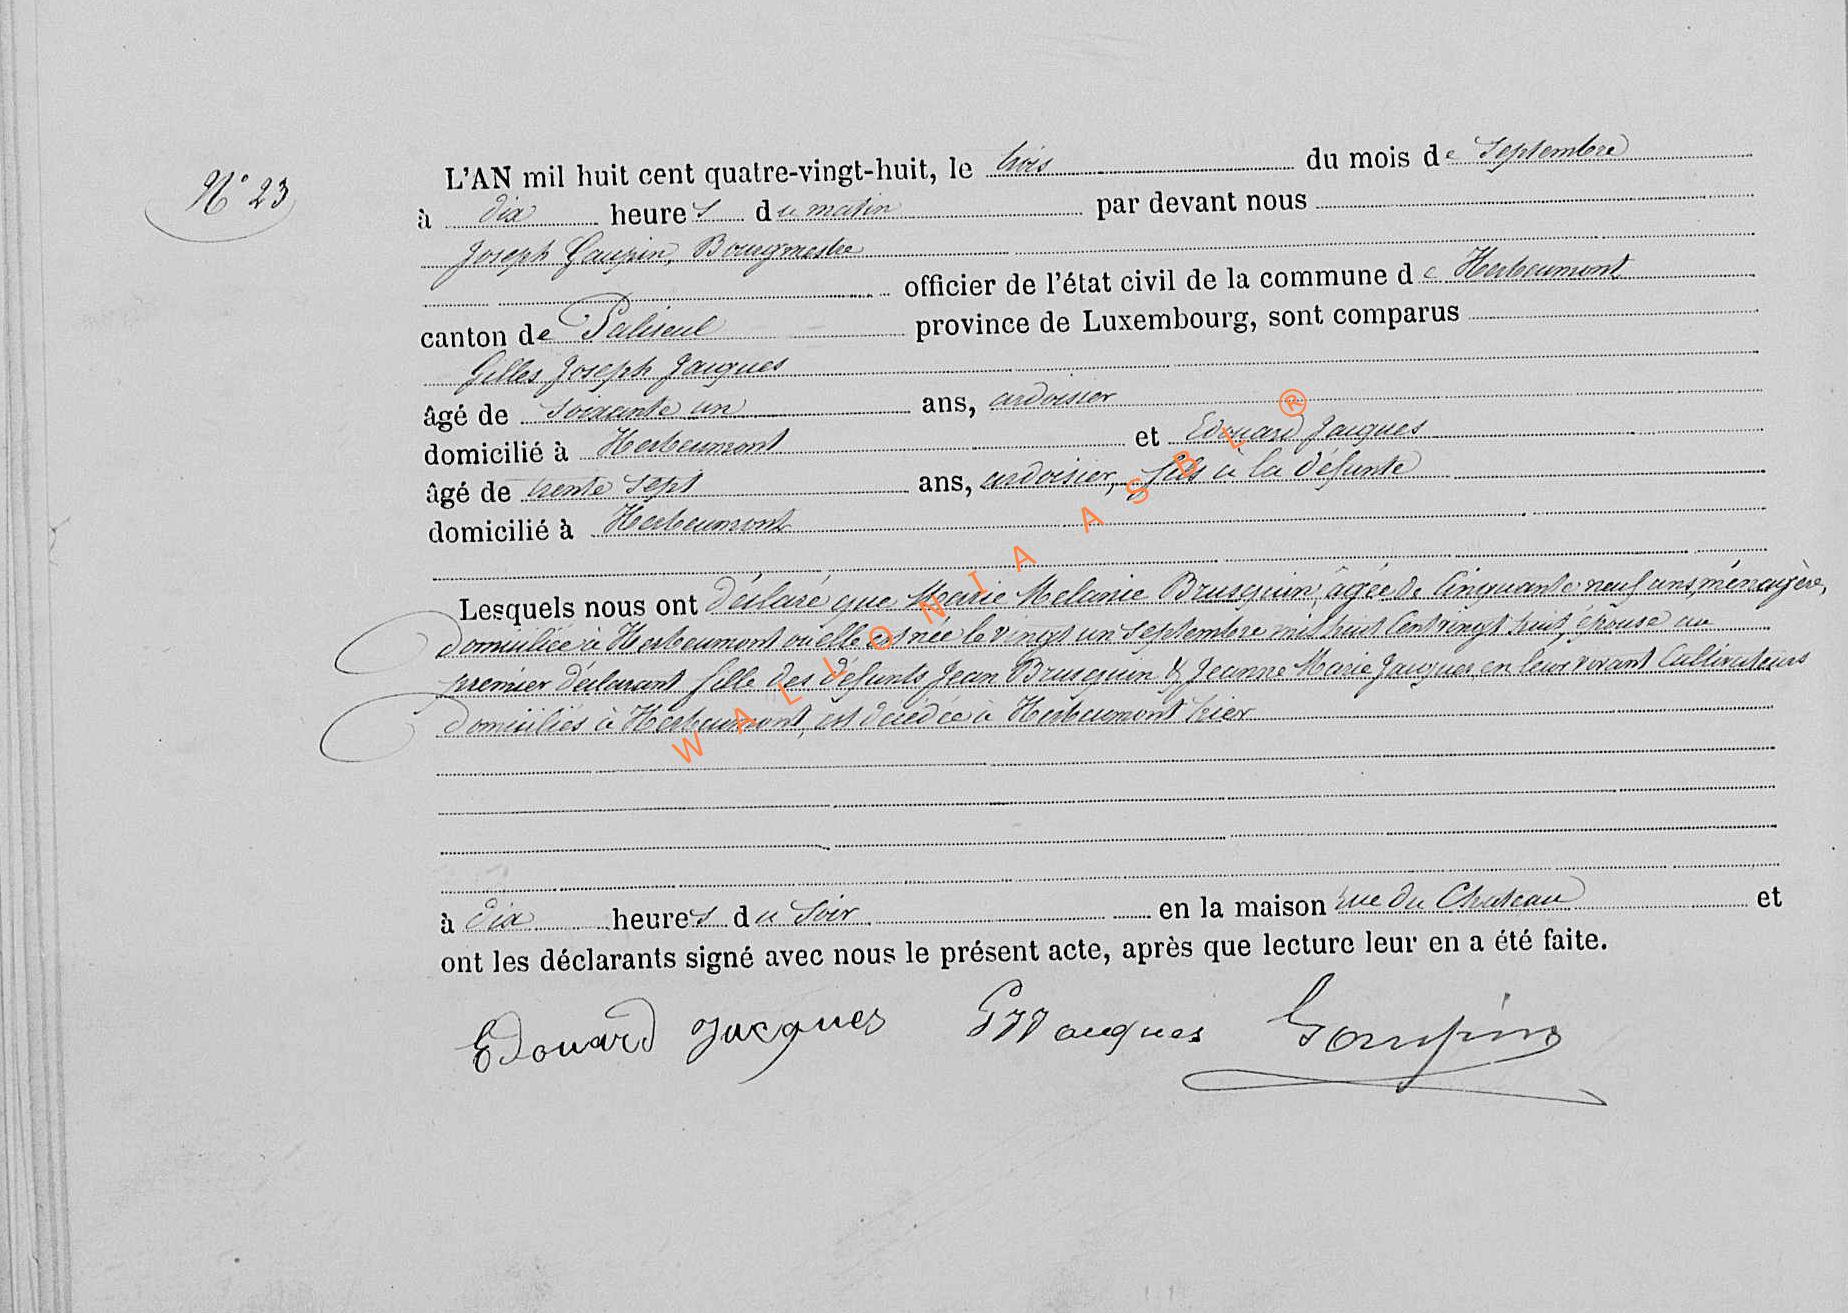 N° 23
L'AN mil huit cent quatre-vingt-huit, le trois du mois de Septembre
à dix heures du matin par devant nous
Joseph Goupin, Bourgmestre
officier de l'état civil de la commune de Herbeumont
canton de Paliseul province de Luxembourg, sont comparus
Gilles Joseph Jacques
âgé de soixante un ans, ardoisier
domicilié à Herbeumont et Edouard Jacques
âgé de trente sept ans, ardoisier, fils à la défunte
domicilié à Herbeumont
Lesquels nous ont déclaré que Marie Melanie Brusquin, âgée de Cinquante neuf ans, ménagère,
domiciliée à Herbeumont où elle est née le vingt un Septembre mil huit Cent vingt huit, épouse au
premier déclarant fille des défunts Jean Brusquin & Jeanne Marie Jacques, en leur vivant Cultivateurs
domiciliés à Herbeumont, est décédée à Herbeumont hier
à dix heures du Soir en la maison rue du Chateau et
ont les déclarants signé avec nous le présent acte, après que lecture leur en a été faite.
Edouard Jacques GJJacques Goupin
WALLONIA ASBL ®